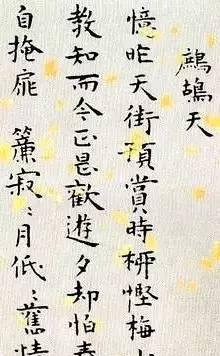 鷓鴣天
憶昨天街預賞時柳慳梅
教知而今正是歡遊夕却怕春
自掩扉 簾寂〻月低〻舊情